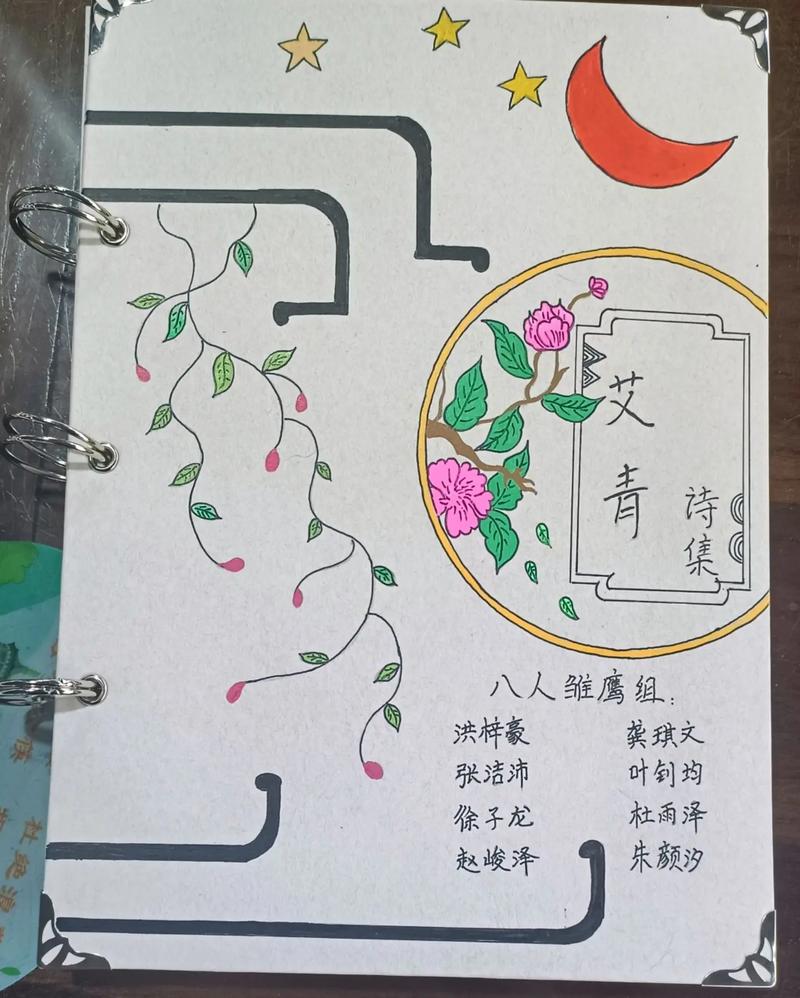 艾青
诗集
八人雏鹰组:
洪梓豪 龚琪文
张洁沛 叶钊均
徐子龙 杜雨泽
赵峻泽 朱颜汐